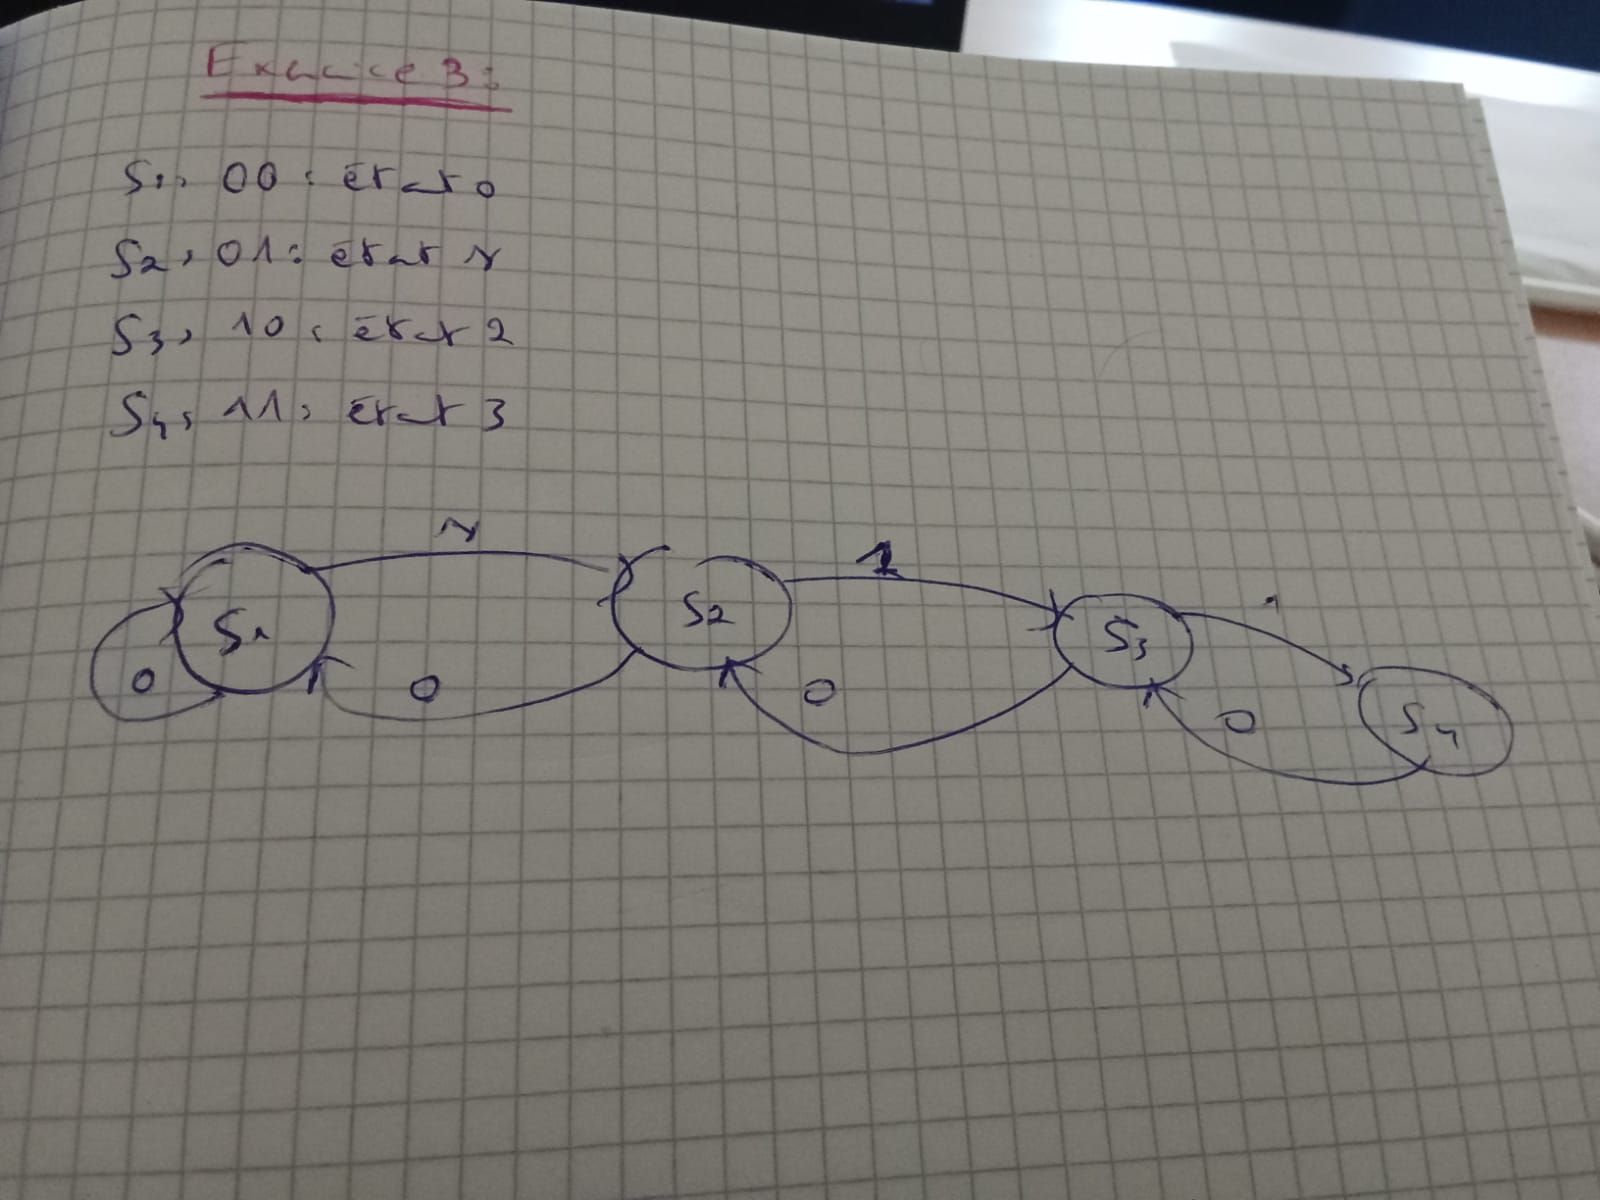 Exercice 3:
S1, 00: état 0
S2, 01: état 1
S3, 10: état 2
S4, 11: état 3
1
1
1
S1
S2
S3
S4
0
0
0
0